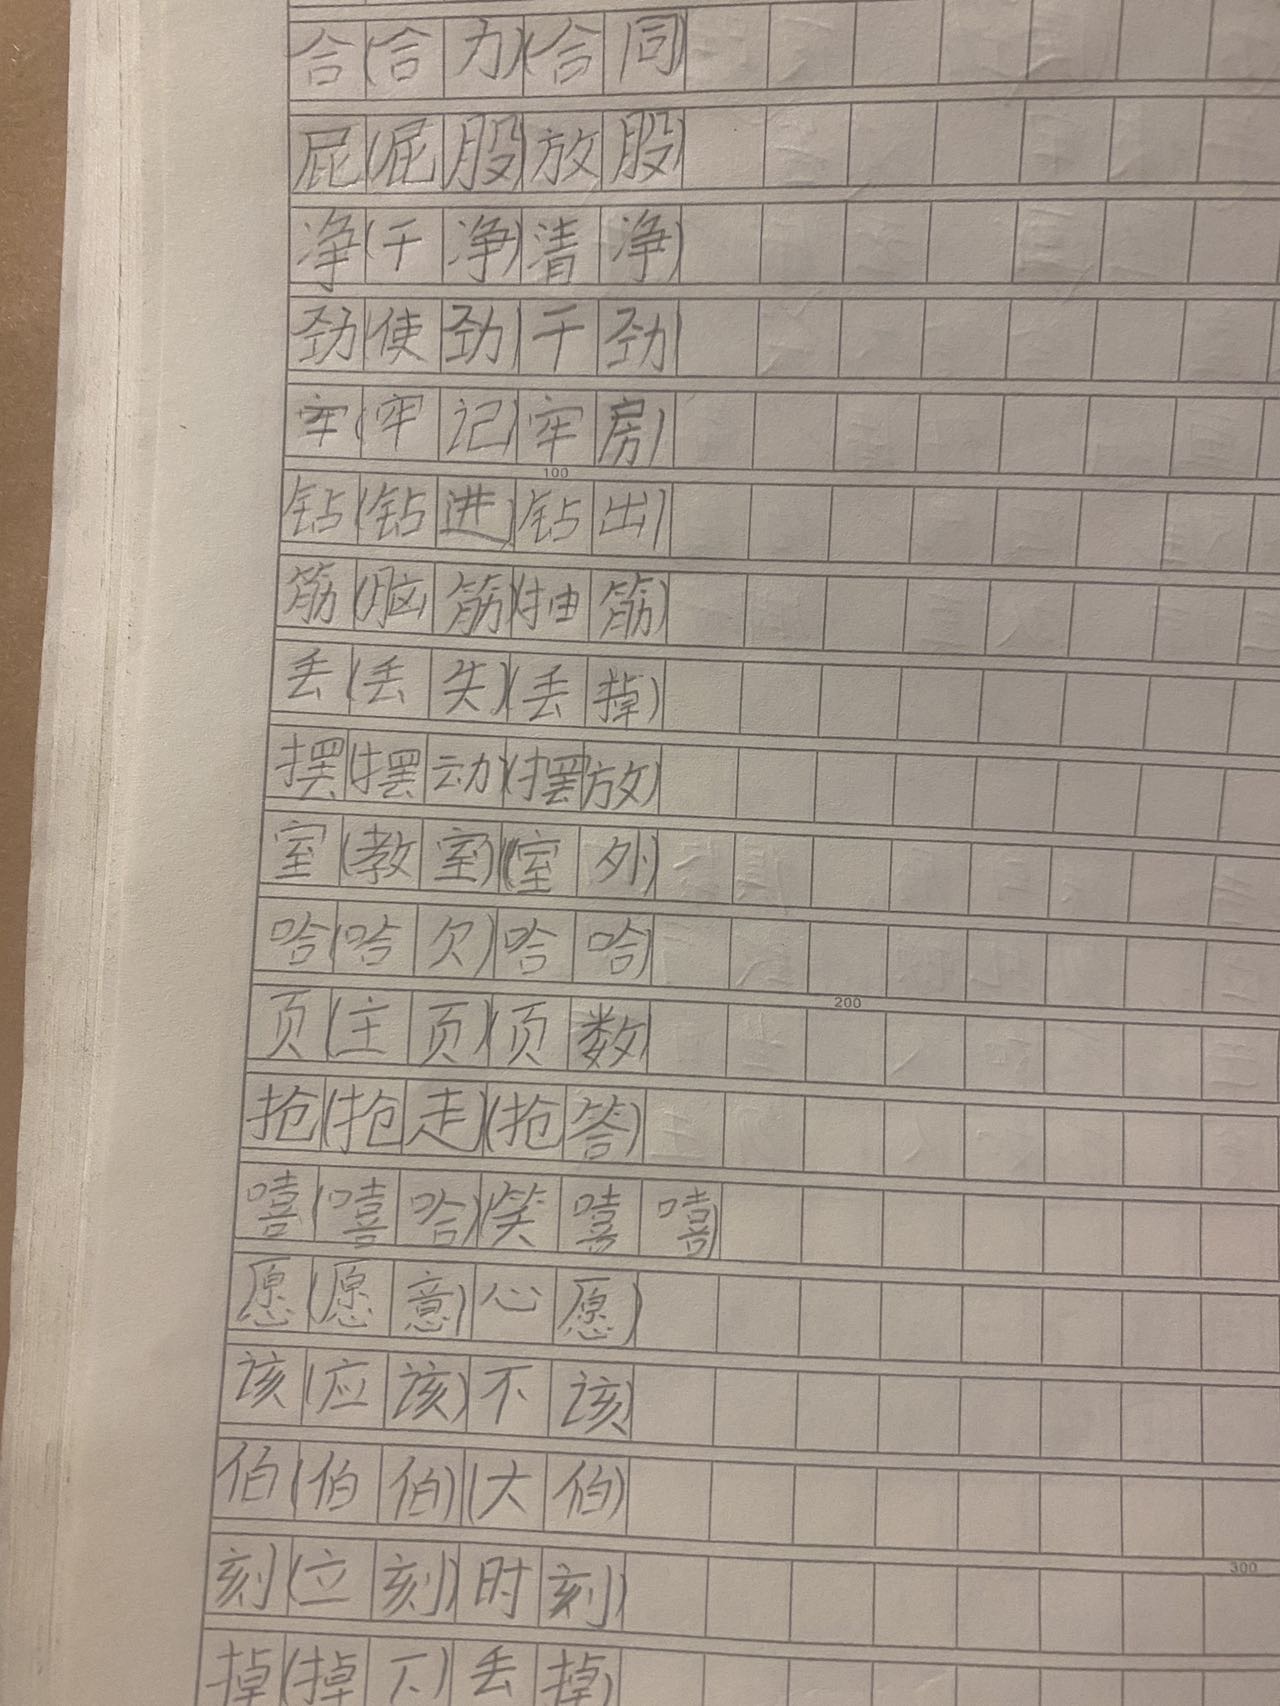 合(合力)(合同
屁(屁股)放股)
净(干净)清净)
劲使劲)干劲)
牢(牢记)牢房)
100
钻(钻进)钻出)
筋(脑筋)(抽筋)
丢(丢失)(丢掉)
摆(摆动)(摆放)
室(教室)(室外)
哈(哈欠)哈哈)
200
页(主页)(页数)
抢(抢走)(抢答)
嘻(嘻哈)(笑嘻嘻)
愿(愿意)心愿)
该(应该)不该)
伯(伯伯)(大伯)
300
刻(立刻)时刻)
掉(掉下)丢掉)